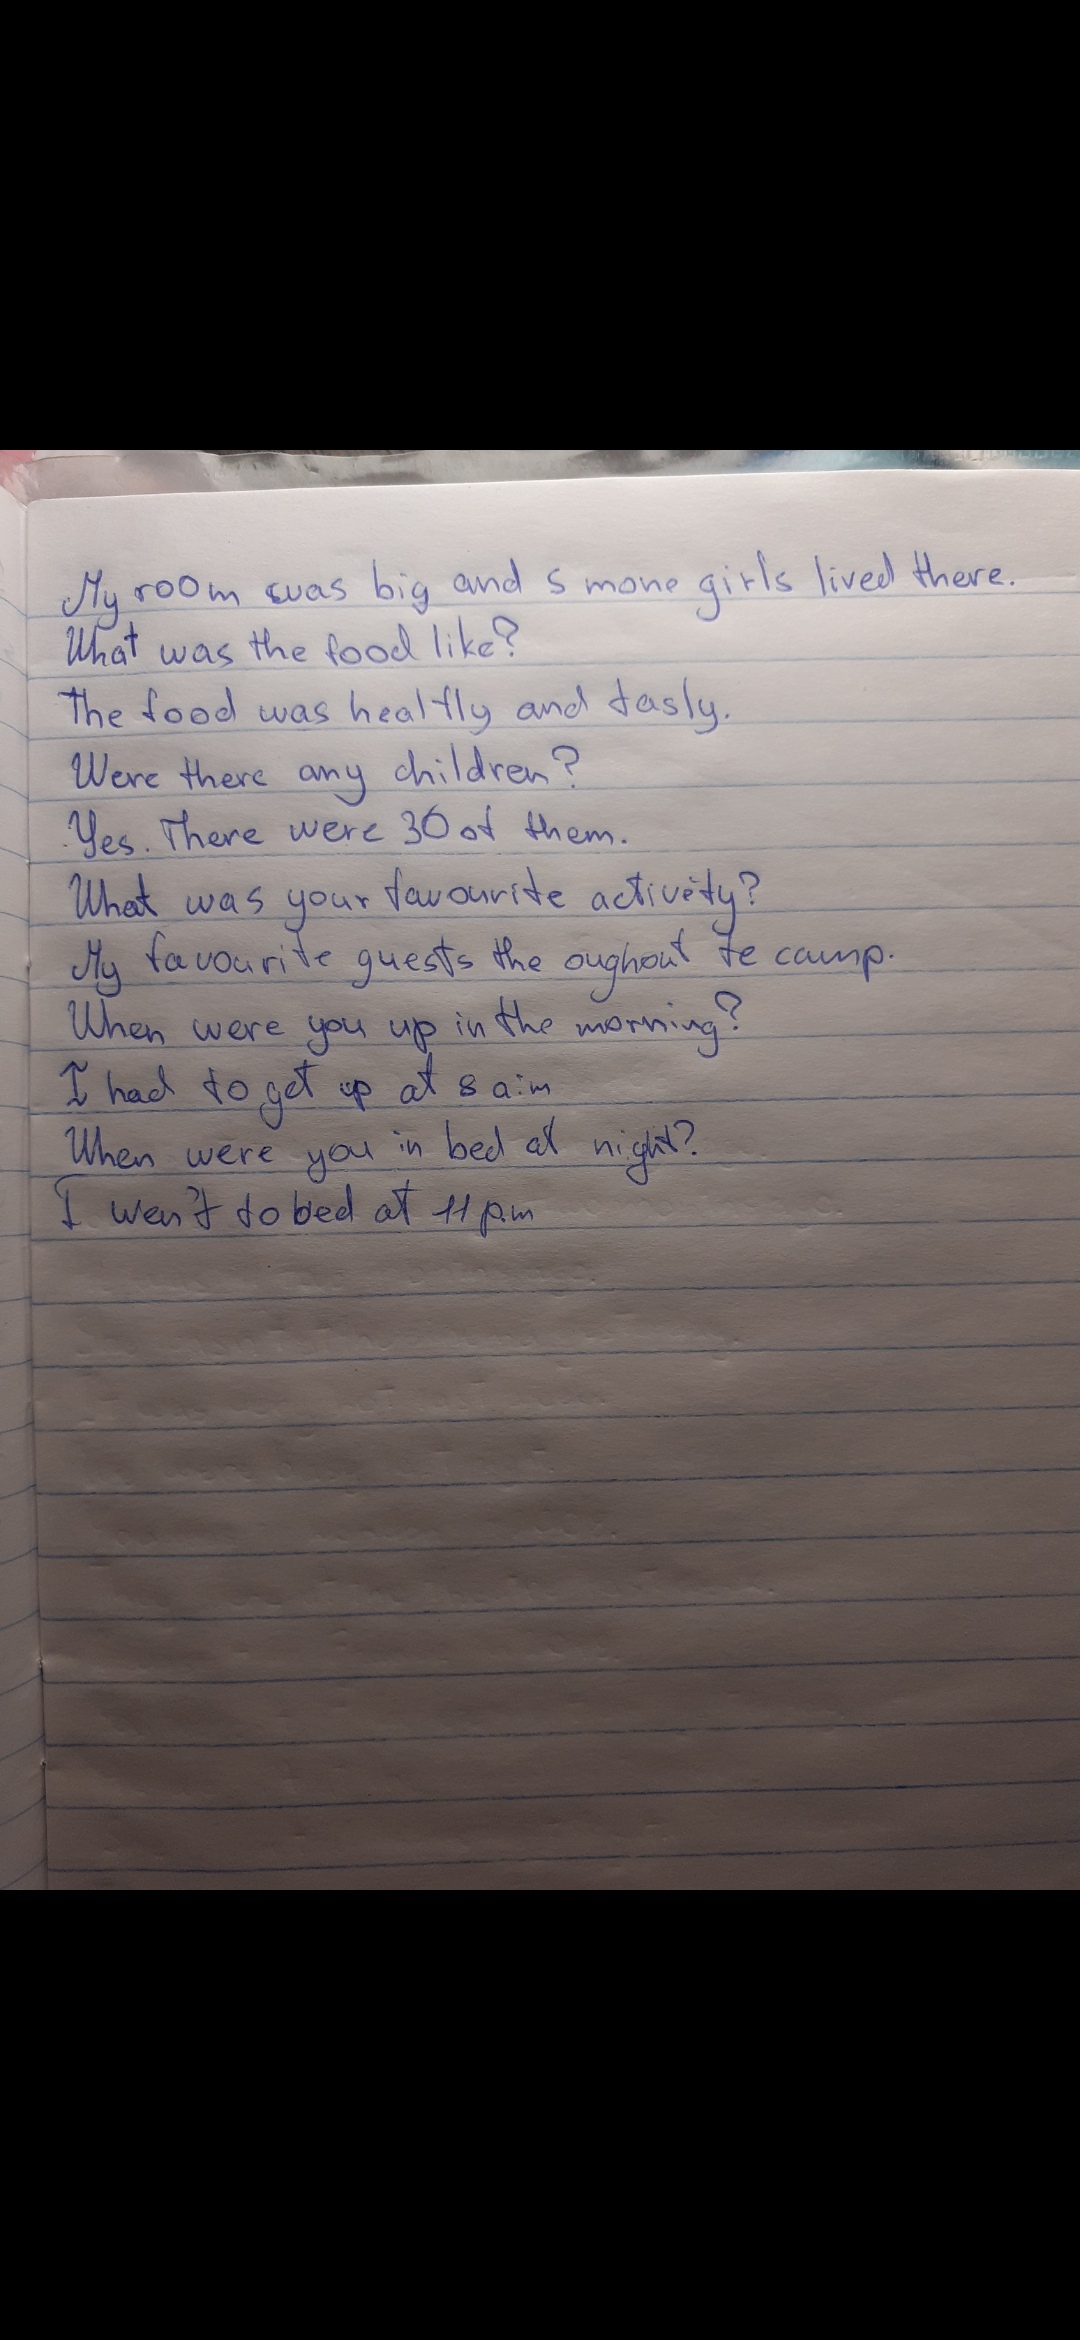 My room was big and 5 mone girls lived there.
What was the food like?
The food was healtly and tasly.
Were there any children?
Yes. There were 30 of them.
What was your favourite activety?
My favourite guests the oughout te camp.
When were you up in the morning?
I had to get up at 8 a.m
When were you in bed at night?
I wen't to bed at 11 p.m